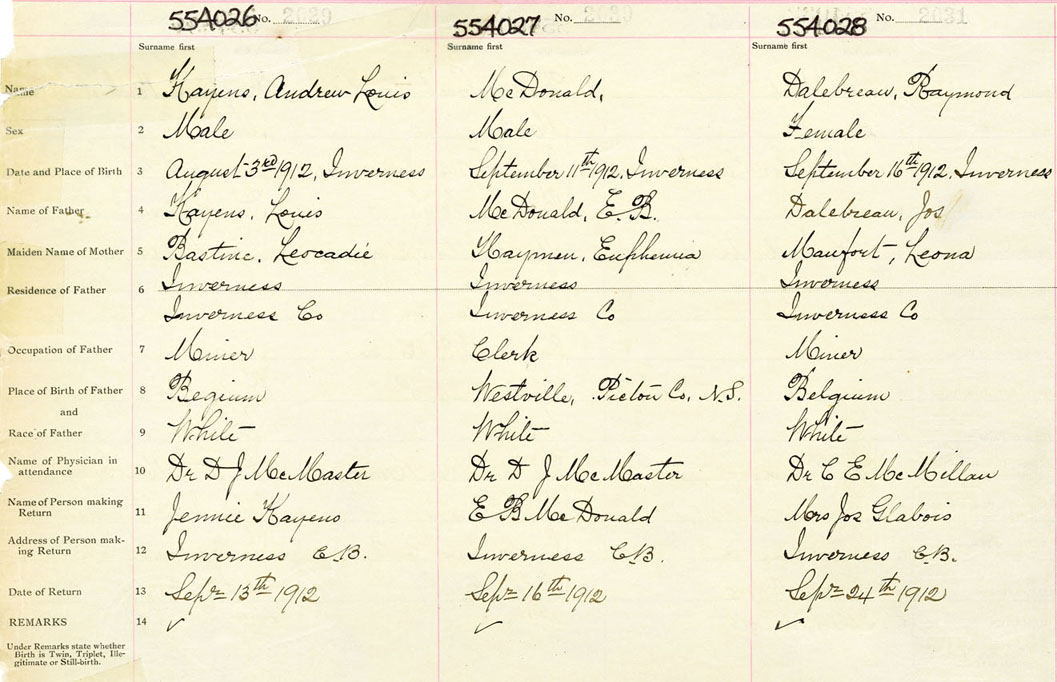 554026 No. 2029 554027 No. 2030 554028 No. 2031
Surname first Surname first Surname first
Name 1 Hayens, Andrew Louis McDonald, Dalebreau, Raymond
Sex 2 Male Male Female
Date and Place of Birth 3 August 3rd 1912, Inverness September 11th 1912, Inverness September 16th 1912, Inverness
Name of Father 4 Hayens, Louis McDonald, E. B. Dalebreau, Jos
Maiden Name of Mother 5 Bastine, Leocadie Haymen, Euphemia Maufort, Leona
Residence of Father 6 Inverness Inverness Inverness
Inverness Co Inverness Co Inverness Co
Occupation of Father 7 Miner Clerk Miner
Place of Birth of Father 8 Begium Westville, Pictou Co, N.S. Belgium
and
Race of Father 9 White White White
Name of Physician in
attendance 10 Dr D J McMaster Dr D J McMaster Dr C E McMillan
Name of Person making
Return 11 Jennie Hayens E B McDonald Mrs Jos Glabois
Address of Person mak-
ing Return 12 Inverness C.B. Inverness C.B. Inverness C.B.
Date of Return 13 Sepr 13th 1912 Sepr 16th 1912 Sepr 24th 1912
REMARKS 14
Under Remarks state whether
Birth is Twin, Triplet, Ille-
gitimate or Still-birth.